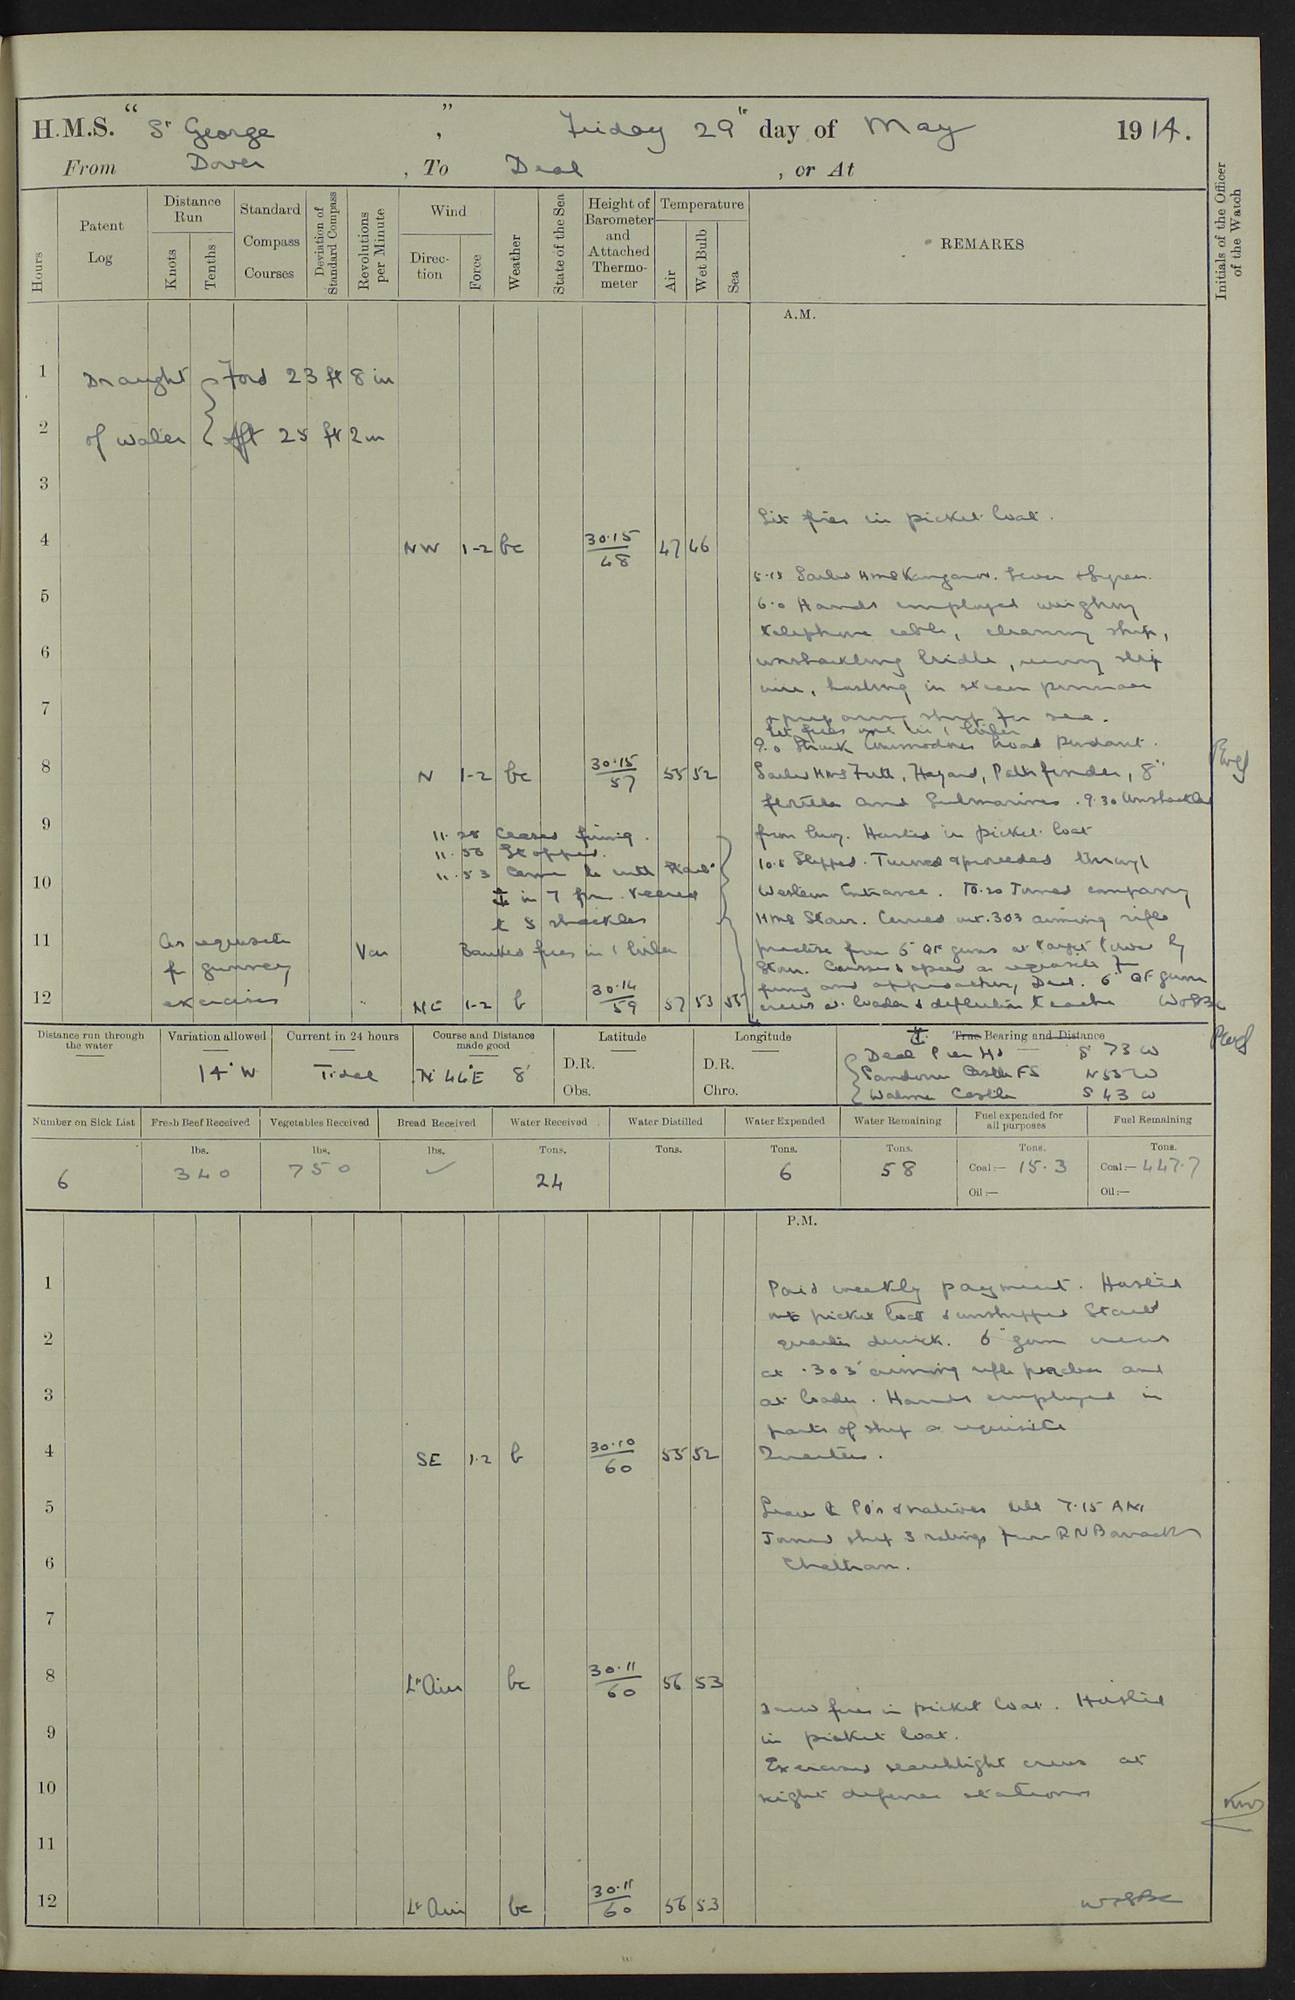 H.M.S. "St George", Friday 29th day of May 1914.
From Dover, To Deal, or At
Hours
Patent Log
Distance Run
Knots
Tenths
Standard Compass Courses
Deviation of Standard Compass
Revolutions per Minute
Wind
Direction
Force
Weather
State of the Sea
Height of Barometer and Attached Thermometer
Temperature
Air
Wet Bulb
Sea
REMARKS
Initials of the Officer of the Watch
A.M.
1 Draught Ford 23 ft 8 in
2 of water Aft 25 ft 2 in
3
Lit fires in picket boat.
4 NW 1-2 bc 30.15 48 47 46
Sailed HMS Kangaroo.
5
6.0 Hands employed weighing
telephone cable, cleaning ship,
6
unshackling bridle, slip
7
wire, hoisting in steam pinnace
ship for sea.
9.0 Struck Commodores broad Pendant.
8 N 1-2 bc 30.15 57 55 52
Sailed HMS Hazard, Pathfinder, 8th
flotilla and Submarines. 9.30 Unshackled
9 11.28 Ceased firing.
from buoy. Hoisted in picket boat
Stopped.
11.53 Came to with Starbd
10.5 Slipped. Turned & proceeded through
10 in 7 fms. Veered
Western Entrance. 10.20 Joined company
to 5 shackles
HMS Stour. Carried out .303 aiming rifle
11 As requisite Var Banked fires in 1 boiler
practice from 6" QF guns at target towed by
for gunnery
Stour. Courses & speed as requisite for
firing and approaching Deal. 6" QF guns
12 exercises " NE 1-2 b 30.14 59 57 53 55
crews at loader & deflection teacher
Distance run through the water
Variation allowed
Current in 24 hours
Course and Distance made good
Latitude
Longitude
True Bearing and Distance
14° W
Tidal
N 44° E 8'
D.R.
Obs.
D.R.
Chro.
Deal Pier Hd S 73 W
Sandown Castle FS N 55 W
Walmer Castle S 43 W
Number on Sick List
Fresh Beef Received
Vegetables Received
Bread Received
Water Received
Water Distilled
Water Expended
Water Remaining
Fuel expended for all purposes
Fuel Remaining
6
lbs. 340
lbs. 750
lbs.
Tons. 24
Tons.
Tons. 6
Tons. 58
Tons. Coal:— 15.3
Oil:—
Tons. Coal:— 447.7
Oil:—
P.M.
1 Paid weekly payment. Hoisted
out picket boat & unshipped Starbd
2 quarter derrick. 6" gun crews
at .303 aiming rifle practice and
3 at loader. Hands employed in
parts of ship as requisite
4 SE 1-2 b 30.10 60 55 52 Quarters.
5 Leave to PO's & natives till 7.15 AM
Joined ship 3 ratings from RN Barracks
6 Chatham.
7
8 Lt Airs bc 30.11 60 56 53
Drew fires in picket boat. Hoisted
9 in picket boat.
Exercised searchlight crews at
10 night defence stations
11
12 Lt Airs bc 30.11 60 56 53